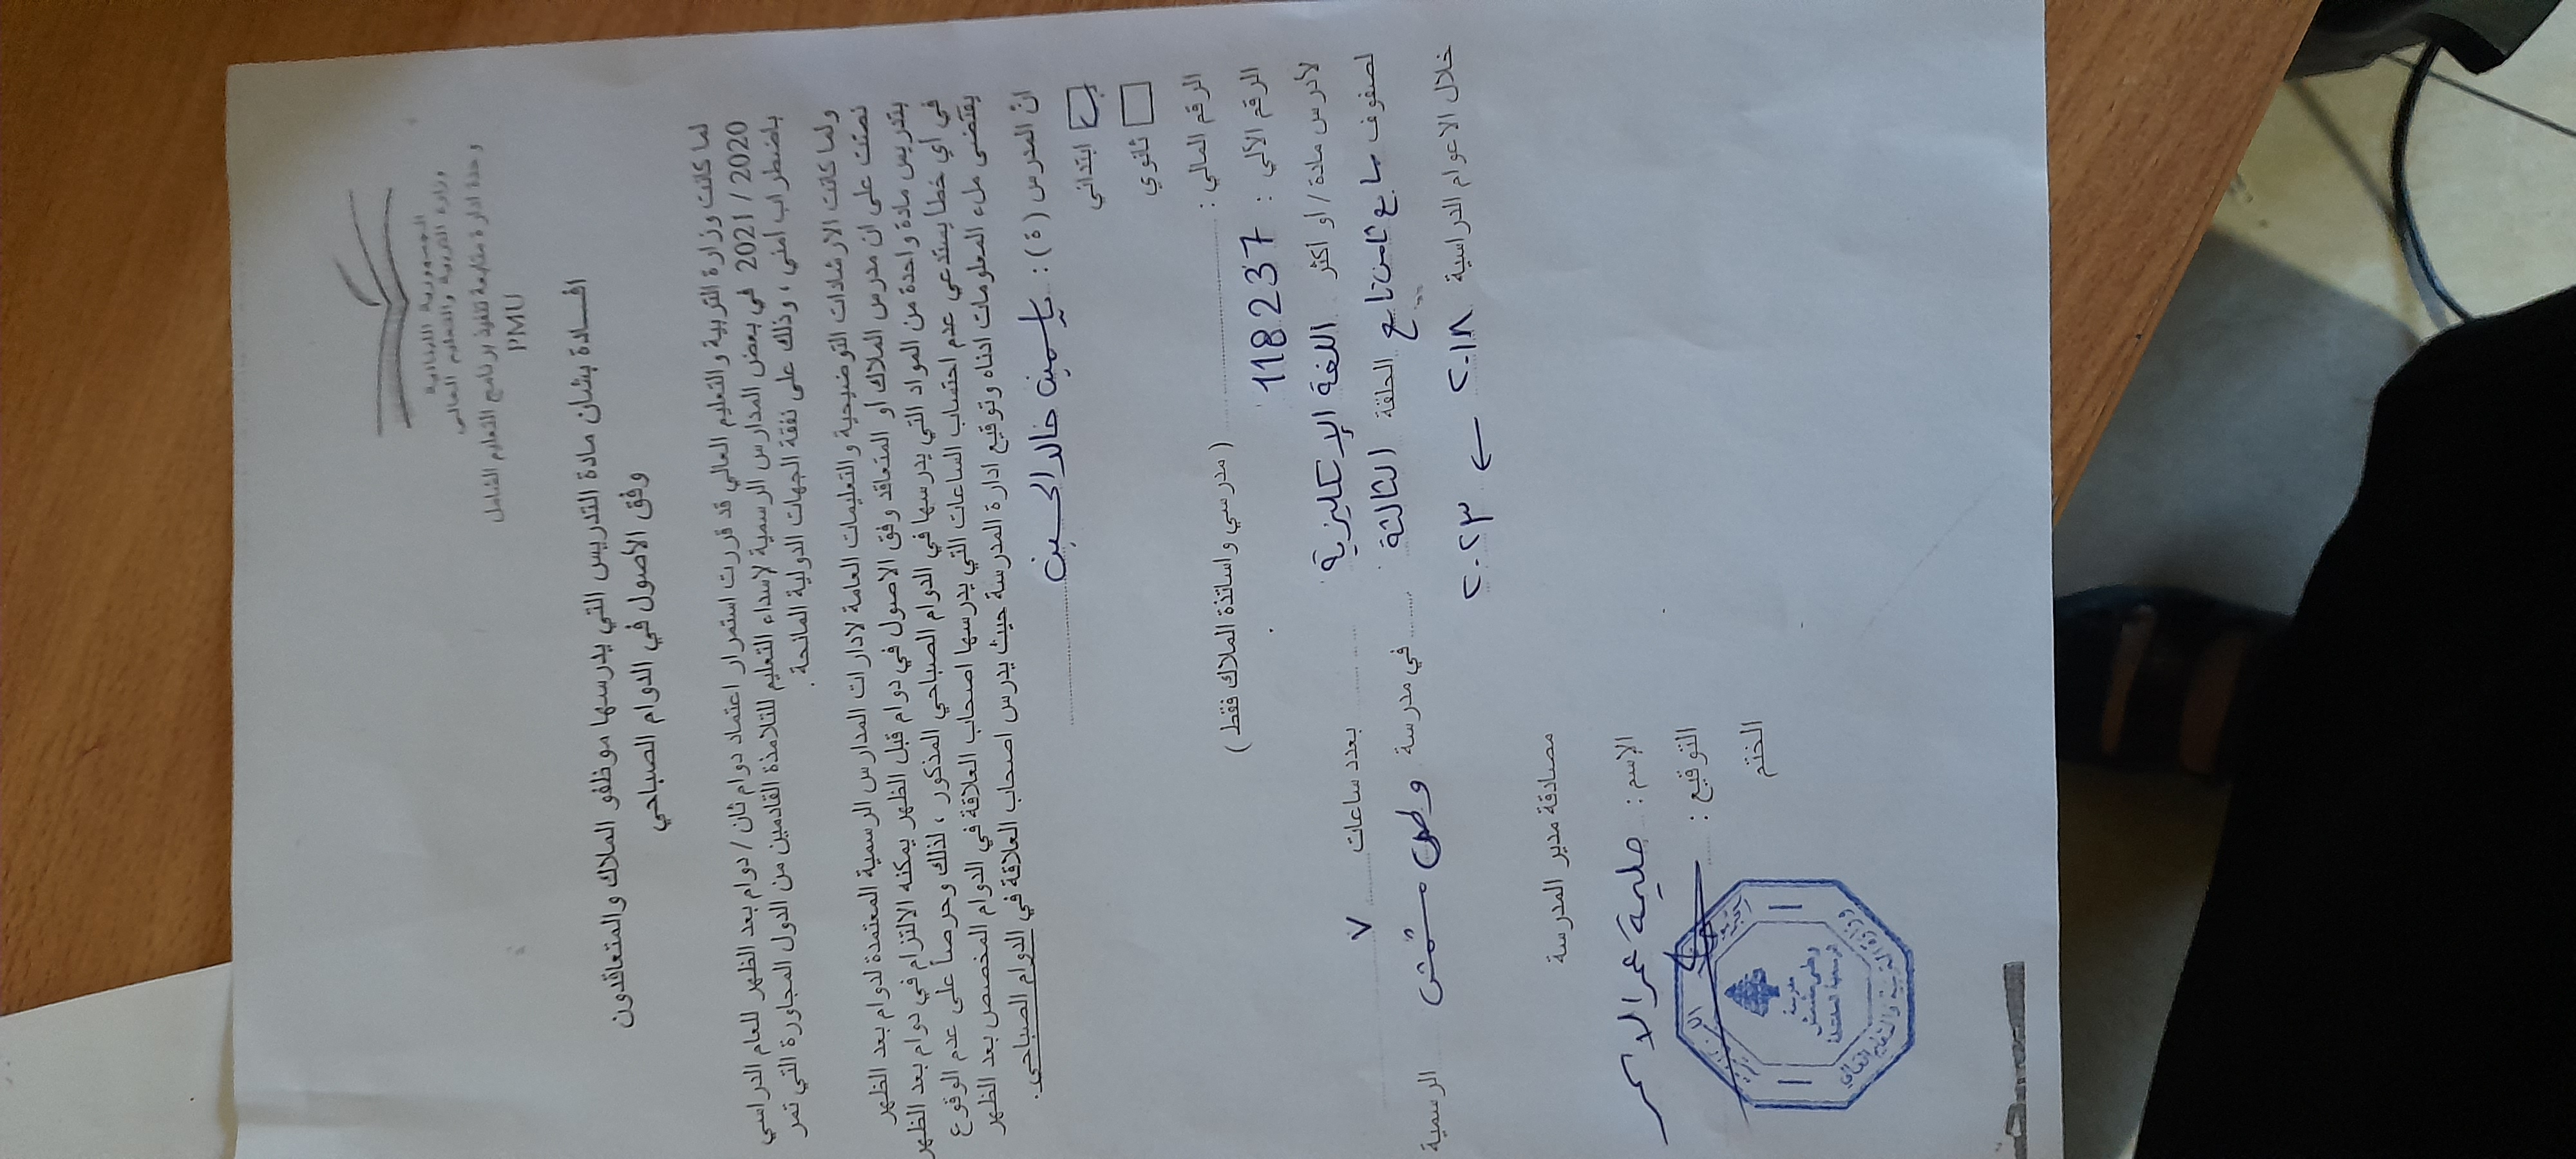 الجمهورية اللبنانية
وزارة التربية والتعليم العالي
وحدة ادارة متابعة تنفيذ برنامج التعليم الشامل
PMU
افسادة بشان مادة التدريس التي يدرسها موظفو الملاك والمتعاقدون
وفق الأصول في الدوام الصباحي
لما كانت وزارة التربية والتعليم العالي قد قررت استمرار اعتماد دوام ثان / دوام بعد الظهر للعام الدراسي
2020 / 2021 في بعض المدارس الرسمية لإسداء التعليم للتلامذة القادمين من الدول المجاورة التي تمر
باضطراب امني ، وذلك على نفقة الجهات الدولية المانحة.
ولما كانت الارشادات التوضيحية والتعليمات العامة لادارات المدارس الرسمية المعتمدة لدوام بعد الظهر
نصت على ان مدرس الملاك او المتعاقد وفق الاصول في دوام قبل الظهر يمكنه الالتزام في دوام بعد الظهر
بتدريس مادة واحدة من المواد التي يدرسها في الدوام الصباحي المذكور ، لذلك وحرصاً على عدم الوقوع
في أي خطا يستدعي عدم احتساب الساعات التي يدرسها اصحاب العلاقة في الدوام المخصص بعد الظهر
يقتضى ملء المعلومات ادناه وتوقيع ادارة المدرسة حيث يدرس اصحاب العلاقة في الدوام الصباحي.
ان المدرس ( ة ) : ياسمينه خالد الحسينه
ابتدائي
ثانوي
الرقم المالي : (مدرسي واساتذة الملاك فقط )
الرقم الآلي : 118237
لأدرس مادة / او اكثر اللغة الإنكليزية بعدد ساعات ٧
لصفوف سابع ثامن تاسع الحلقة الثالثة في مدرسة وطى مشمش الرسمية
خلال الاعوام الدراسية ٢٠١٨ ← ٢٠٢٣
مصادقة مدير المدرسة
الإسم : حليمة عمر الاسمر
التوقيع :
الختم
مدرسة
وطى مشمش
الرسمية المختلطة
وزارة التربية والتعليم العالي